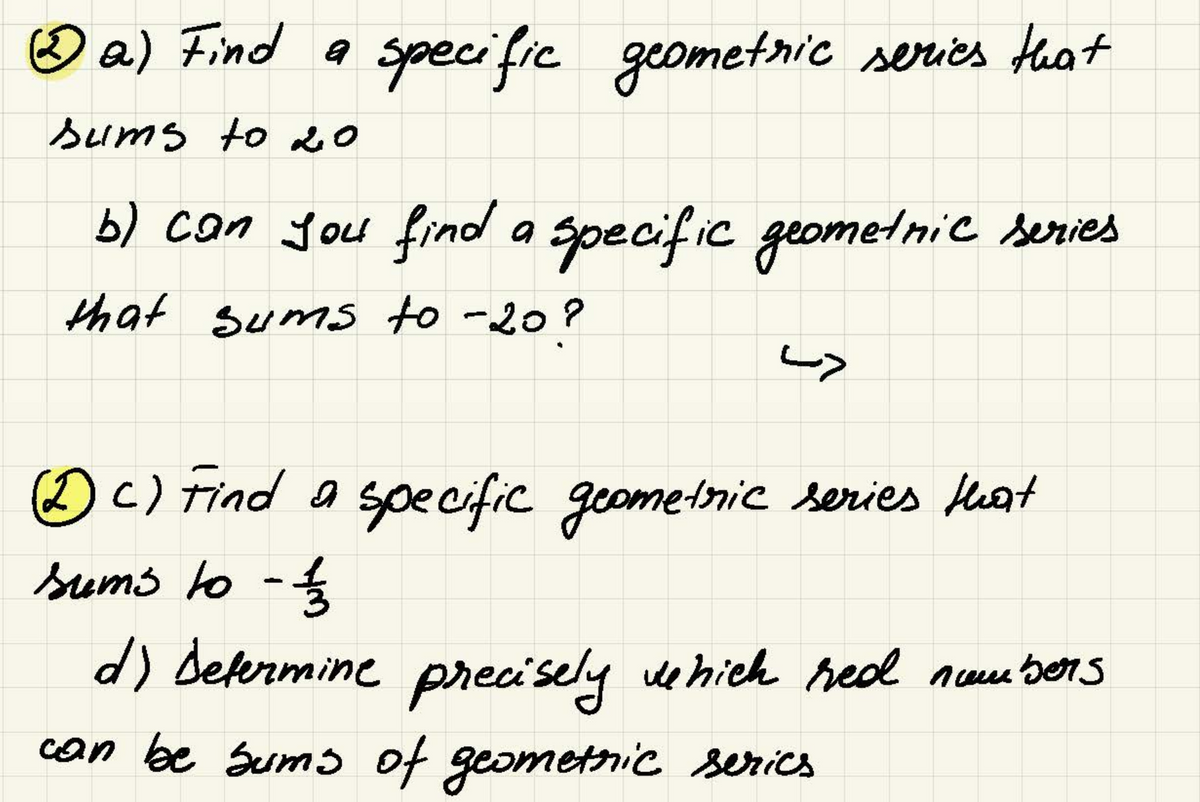 ② a) Find a specific geometric series that
sums to 20
b) can you find a specific geometric series
that sums to -20?
↪
② c) Find a specific geometric series that
sums to -1/3
d) Determine precisely which real numbers
can be sums of geometric series